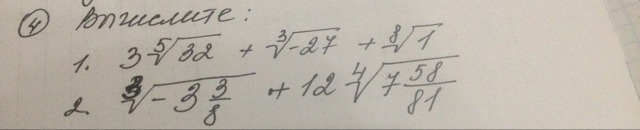 ④ Вычислите:
1. 3⁵√32 + ³√-27 + ⁸√1
2. ³√-3 3/8 + 12 ⁴√7 58/81